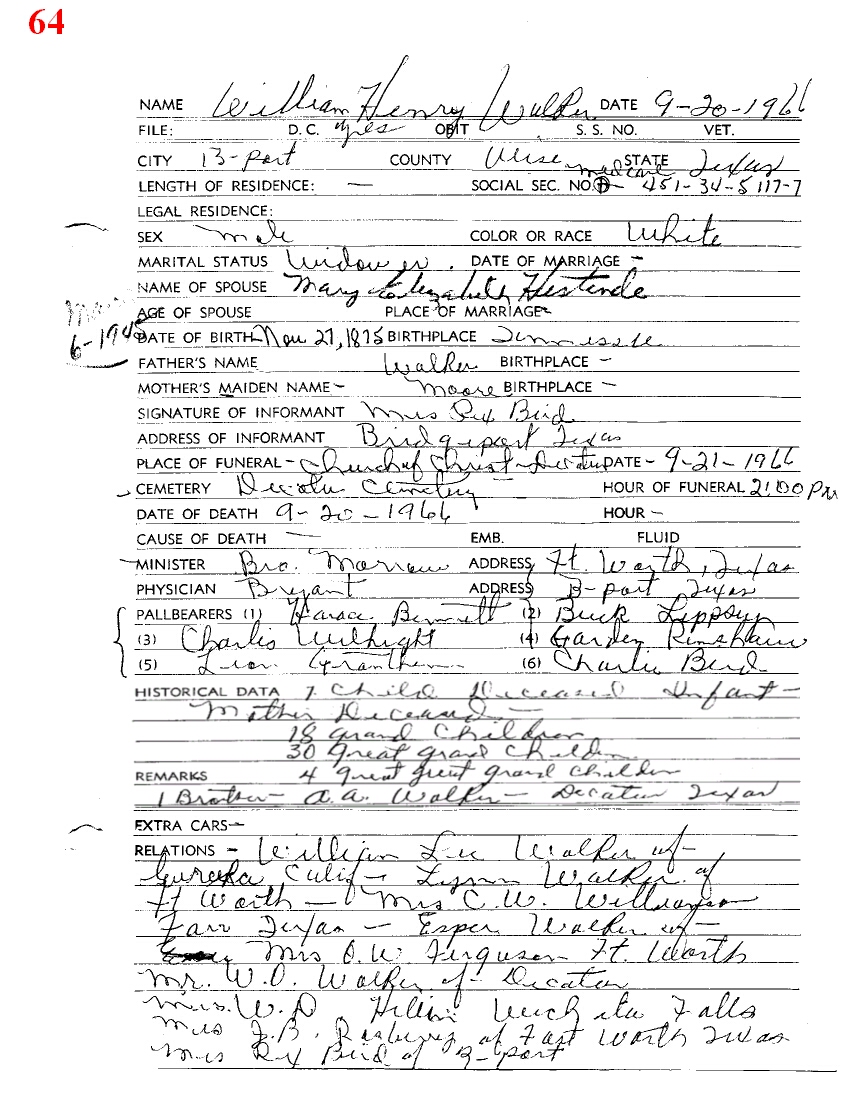 64
NAME William Henry Walker DATE 9-20-1966
FILE: D.C. yes OBIT S.S. NO. VET.
CITY B-port COUNTY Wise STATE Texas
medcare
LENGTH OF RESIDENCE: — SOCIAL SEC. NO. 451-34-5117-7
LEGAL RESIDENCE:
SEX Male COLOR OR RACE White
MARITAL STATUS Widower. DATE OF MARRIAGE -
NAME OF SPOUSE Mary Elizabeth
AGE OF SPOUSE PLACE OF MARRIAGE-
6-1948
DATE OF BIRTH Nov 27, 1875 BIRTHPLACE Tennessee
FATHER'S NAME Walker BIRTHPLACE -
MOTHER'S MAIDEN NAME - Moore BIRTHPLACE -
SIGNATURE OF INFORMANT Mrs Rex Bird
ADDRESS OF INFORMANT Bridgeport Texas
PLACE OF FUNERAL - Church of Christ - Decatur DATE - 9-21-1966
CEMETERY Decatur Cemetery HOUR OF FUNERAL 2:00 Pm
DATE OF DEATH 9-20-1966 HOUR -
CAUSE OF DEATH — EMB. FLUID
MINISTER Bro. Morrow ADDRESS Ft. Worth, Texas
PHYSICIAN Bryant ADDRESS B-port Texas
PALLBEARERS (1) Horace Bennett (2) Buck
(3) Charlis (4)
(5) Leon (6) Charlie Bird
HISTORICAL DATA 1 Child Deceased Infant -
Mother Deceased -
18 grand Children
30 Great grand Children
REMARKS 4 great great grand children
1 Brother - A.A. Walker - Decatur Texas
EXTRA CARS-
RELATIONS - William Lee Walker of -
Eureka Calif - Lynn Walker of
Ft Worth - Mrs C.W. Williamson
Farr Texas - Esper Walker of -
Mrs O.W. Ferguson Ft. Worth
Mr. W.O. Walker of - Decatur
Mrs. W.D. Wichita Falls
Mrs J.B. of Fort Worth Texas
Mrs Rex Bird of B-port